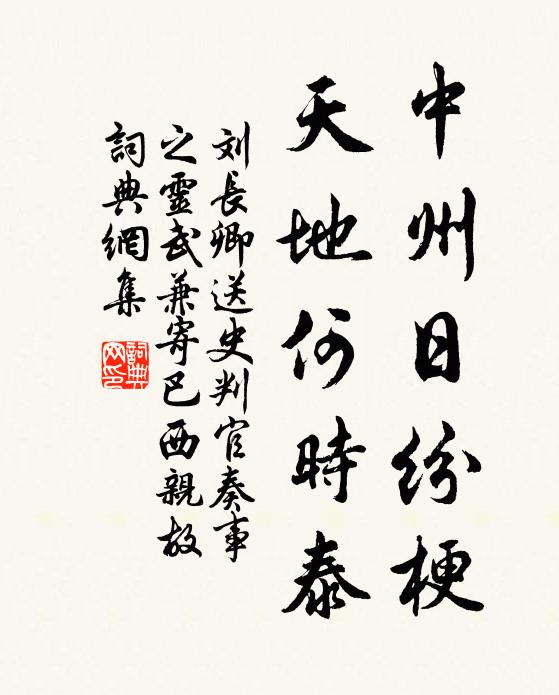 中州日紛梗
天地何時泰
刘長卿送史判官奏事
之靈武兼寄巴西親故
詞典網集
詞典网印